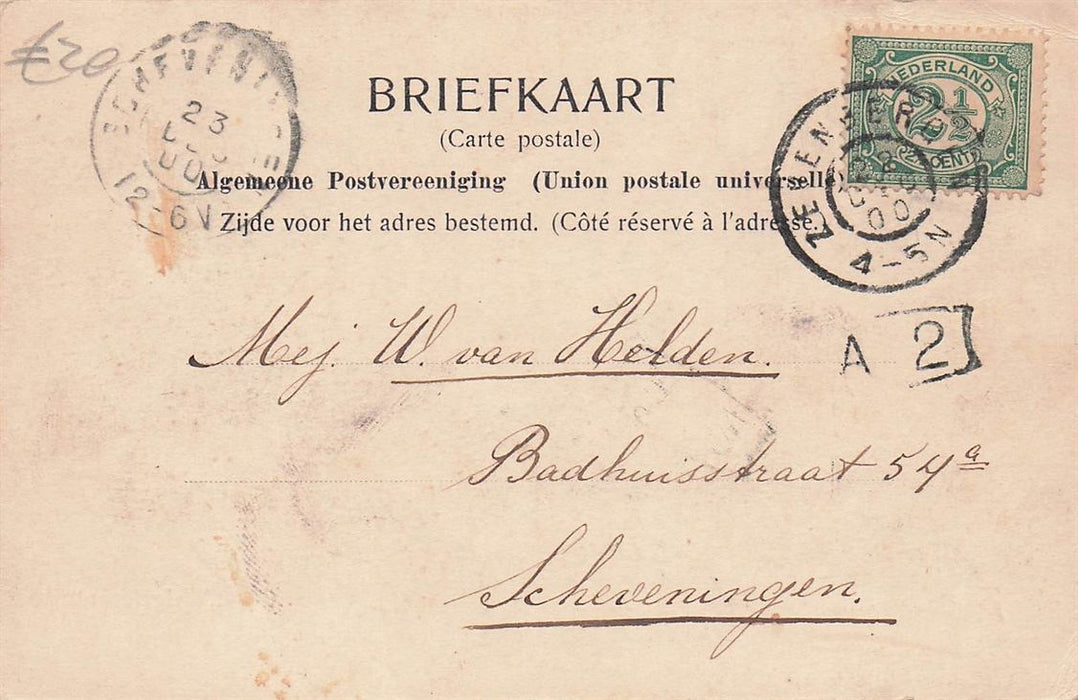 €20
23
00
12-6V
BRIEFKAART
(Carte postale)
Algemeene Postvereeniging (Union postale universelle)
Zijde voor het adres bestemd. (Côté réservé à l'adresse.)
NEDERLAND
2½
2½ CENT
ZEVENBERGEN
00
4-5N
A 2
Mej. W. van Helden.
Badhuisstraat 54a
Scheveningen.